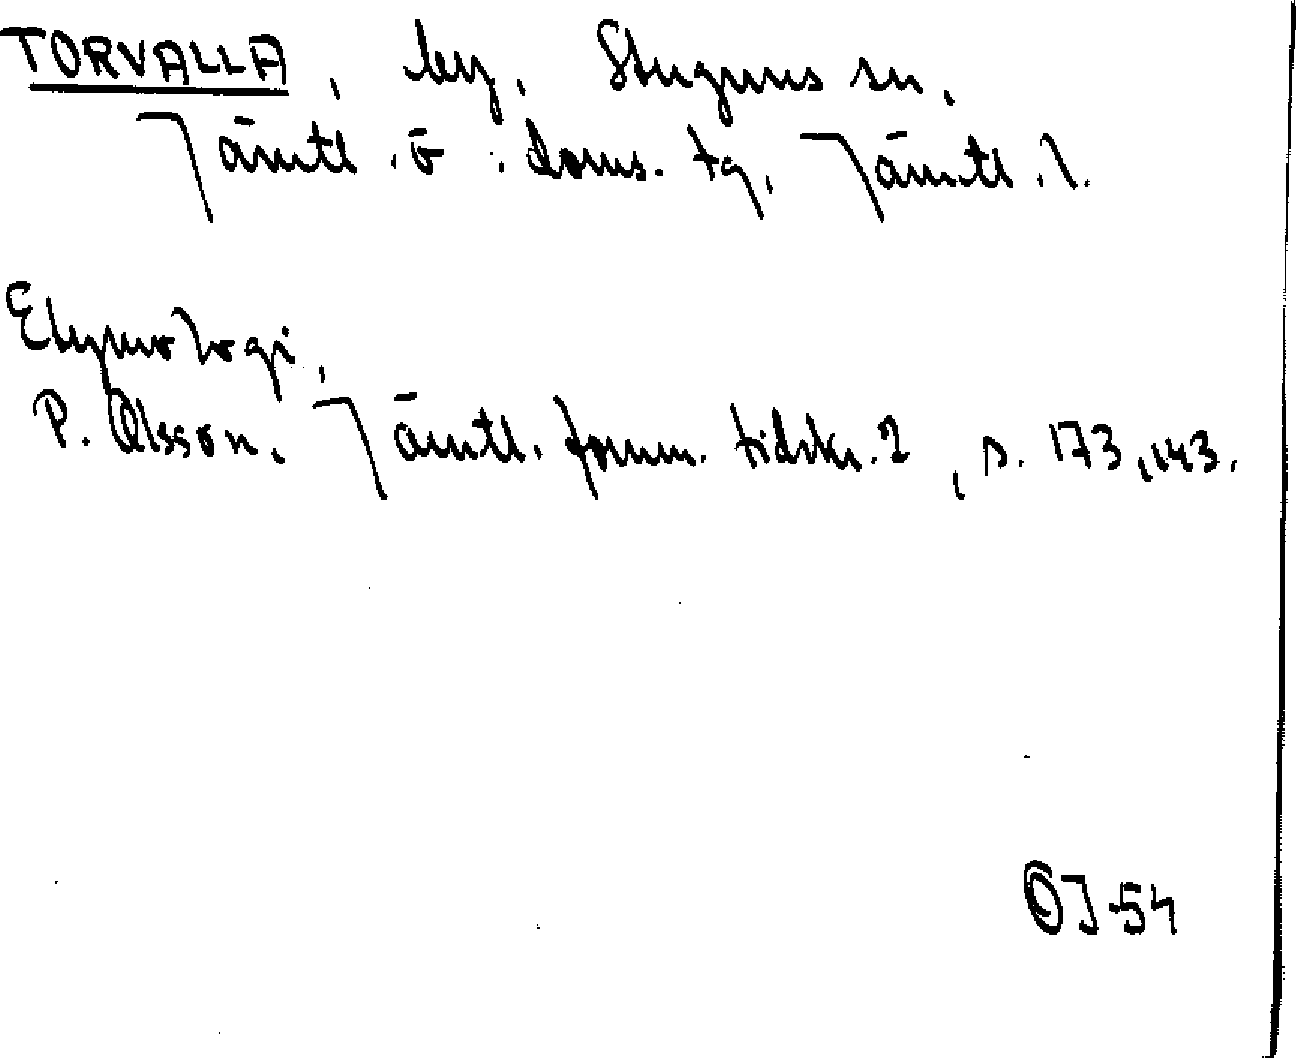 TORVALLA, by, Stuguns sn,
Jämtl. ö. doms. tg, Jämtl. l.
Etymologi,
P. Olsson, Jämtl. fornm. tidskr. 2, s. 173, 143.
OJ 54